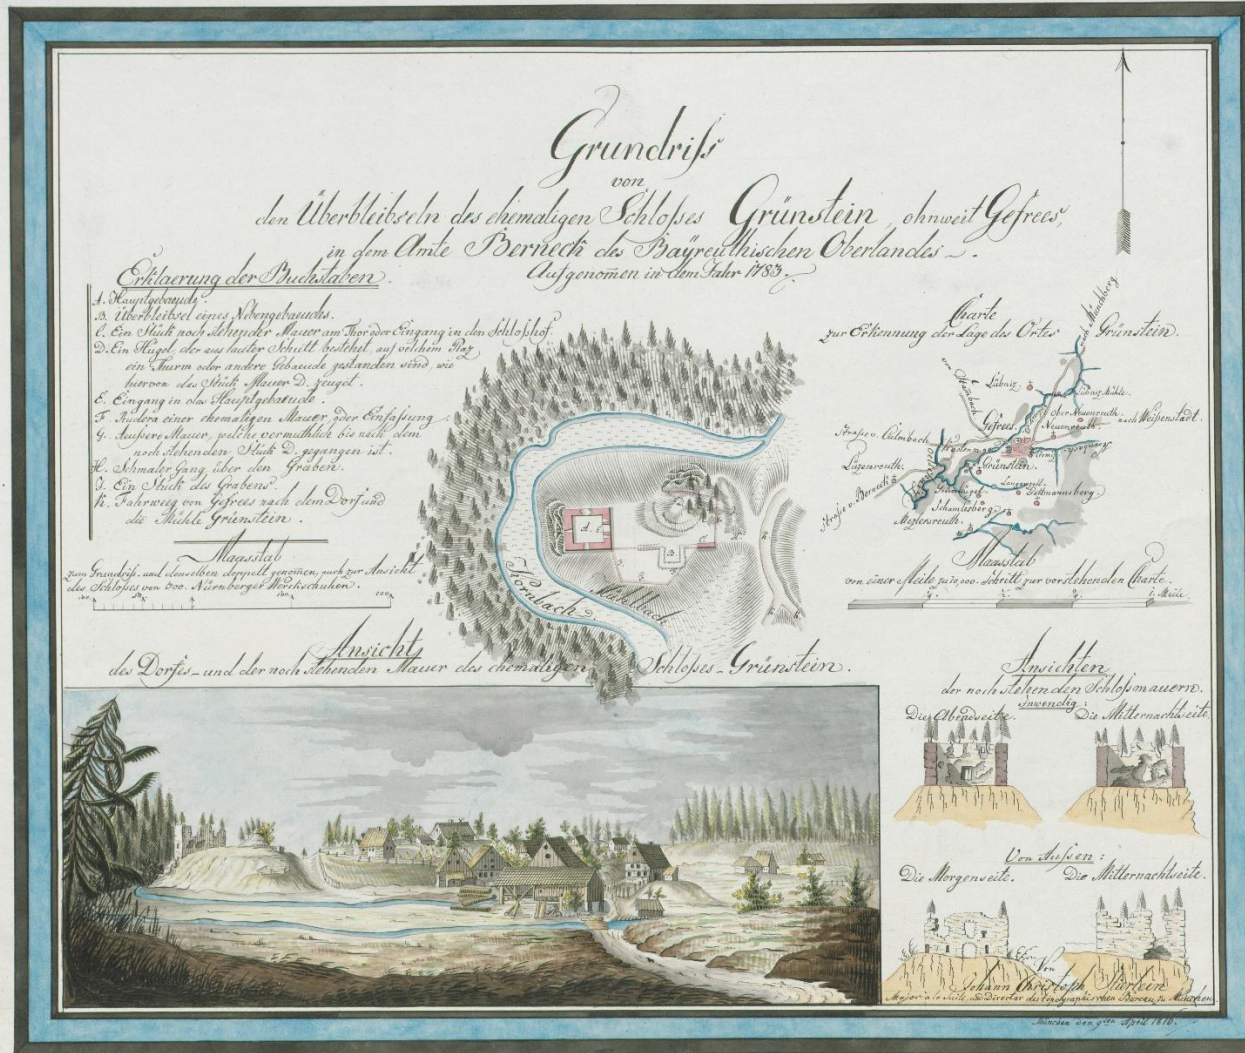 Grundriſs
von
den Überbleibseln des ehemaligen Schloſses Grünstein, ohnweit Gefrees,
in dem Amte Berneck des Bayreuthischen Oberlandes.
Aufgenom̄en in dem Jahr 1783.
Erklaerung der Buchstaben.
A. Hauptgebaeude.
B. Überbleibsel eines Nebengebaeudes.
C. Ein Stück noch stehender Mauer am Thor oder Eingang in den Schloſshof.
D. Ein Hügel, der aus lauter Schutt bestehet, auf welchem
ein Thurm oder andere Gebaeude gestanden sind, wie
hiervon das Stück Mauer D. zeuget.
E. Eingang in das Hauptgebaeude.
F. Rudera einer ehemaligen Mauer, oder Einfaſsung
G. Aeusere Mauer, welche vermuthlich bis nach dem
noch stehenden Stück D. gegangen ist.
H. Schmaler Gang über den Graben.
J. Ein Stück des Grabens.
K. Fahrweg von Gefrees nach dem Dorf und
die Mühle Grünstein.
Maasstab
zum Grundriſs, und denselben doppelt genom̄en, auch zur Ansicht
des Schloſses von 300. Nürnberger Werckschuhen.
A.
B.
Kornbach
Mühlbach
Charte
zur Erkennung der Lage des Ortes Grünstein.
nach Münchberg
Lübniz
Lübniz Mühle.
Ober Neuenreuth.
nach Weiſsenstadt.
Gefrees
Neuenreuth.
Straſse v. Culmbach
Lüzenreuth.
Grünstein.
Straſse v. Berneck
Schamlesberg
Mezlersreuth
Maasstab
von einer Meile zu 10,000. Schritt zur vorstehenden Charte.
1. Meile
Ansicht
des Dorfes und der noch stehenden Mauer des ehemaligen Schloſses Grünstein.
Ansichten
der noch stehenden Schloſsmauern.
Inwendig:
Die Abendseite.
Die Mitternachtseite.
Von Auſsen:
Die Morgenseite.
Die Mitternachtseite.
Von
Johann Christoph Stierlein
Major à la Suite, und Director des topographischen Bureau zu München.
München den 9ten April 1816.